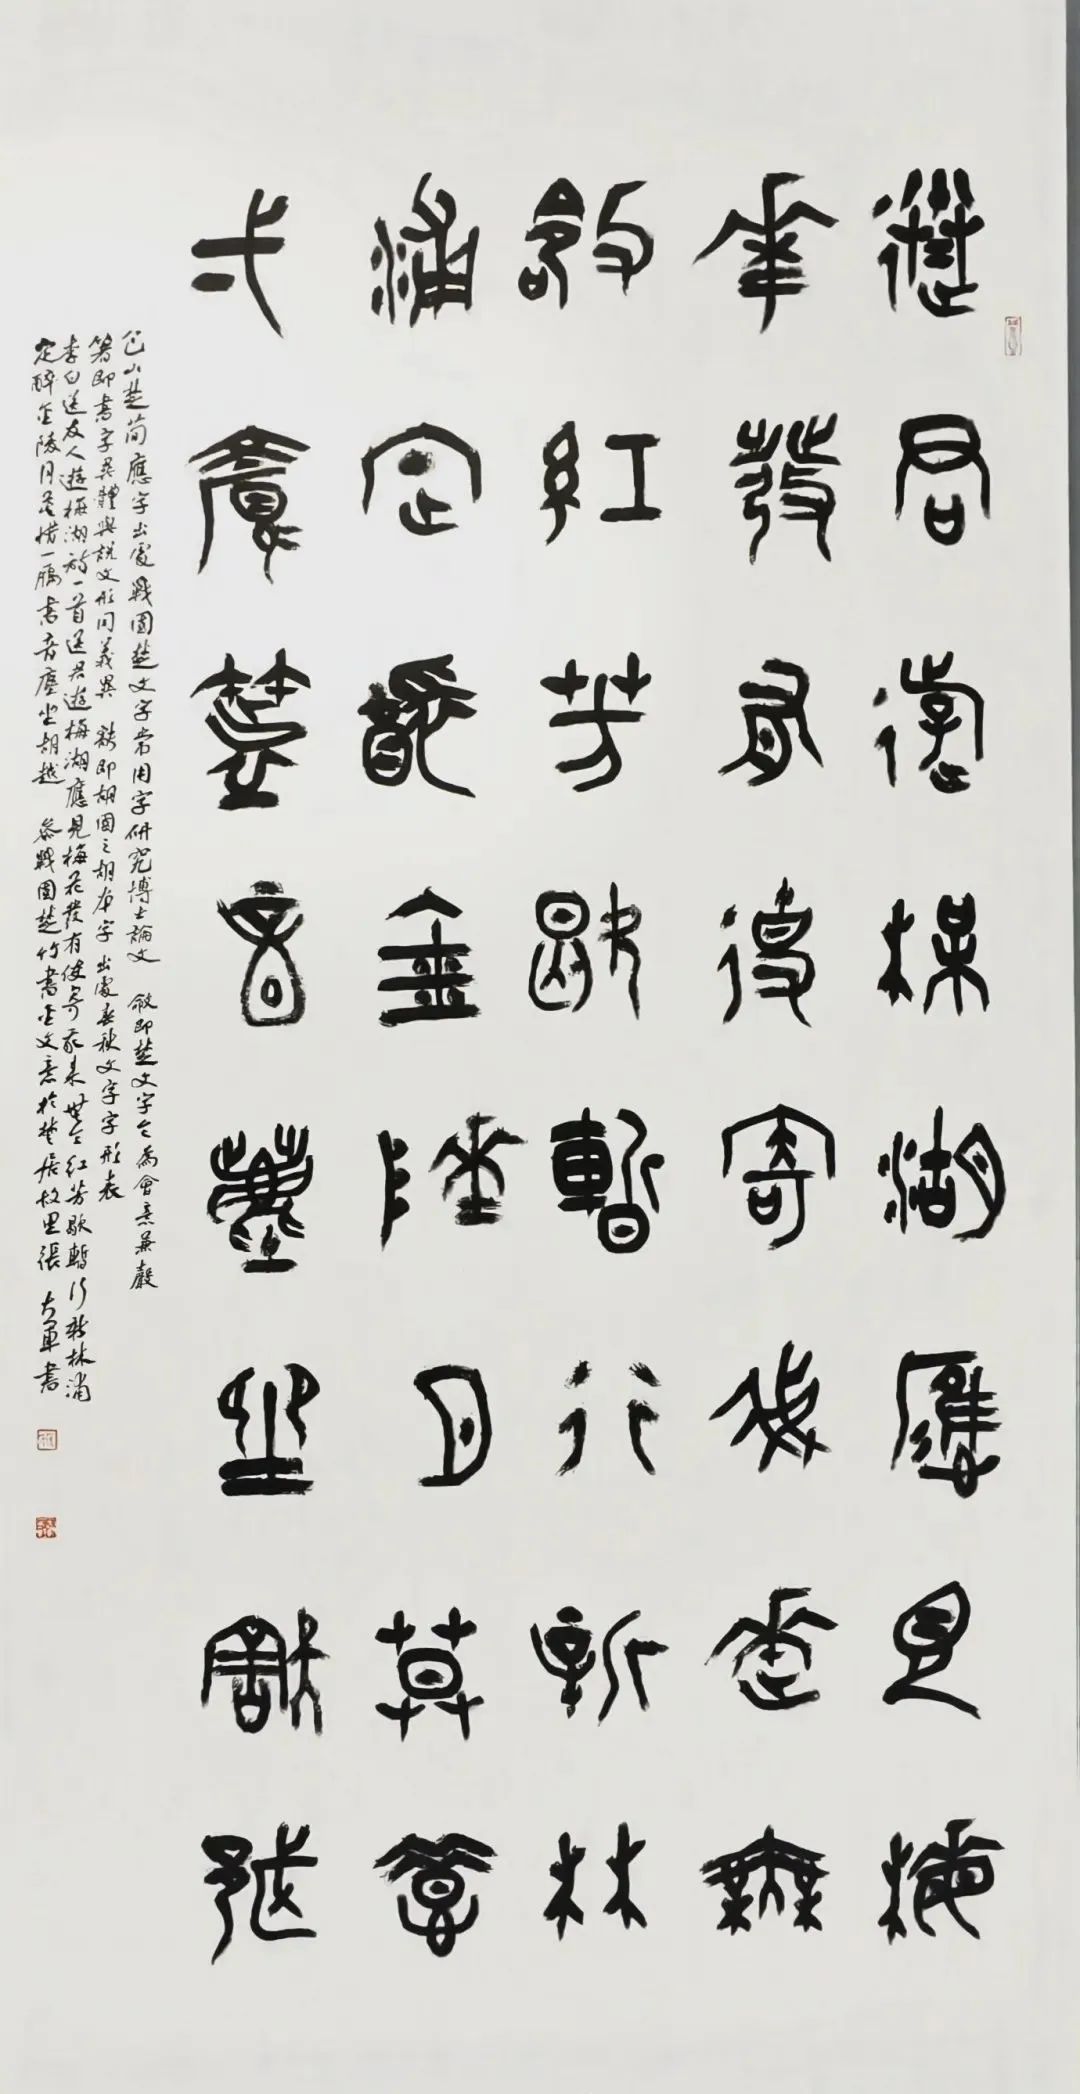 送君遊梅湖應見梅
華發有使寄我來無
令紅芳歇暫行新林
浦定醉金陵月莫惜
弌鴈箸音塵坐㝬越
包山楚簡應字出處戰國楚文字常用字研究博士論文 即楚文字令為會意兼聲
箸即書字異體與說文形同義異 㝬即胡國之胡本字出處春秋文字字形表
李白送友人遊梅湖詩一首送君遊梅湖應見梅花發有使寄我來無令紅芳歇暫行新林浦
定醉金陵月莫惜一鴈書音塵坐胡越 參戰國楚竹書金文意於楚居故里張大軍書